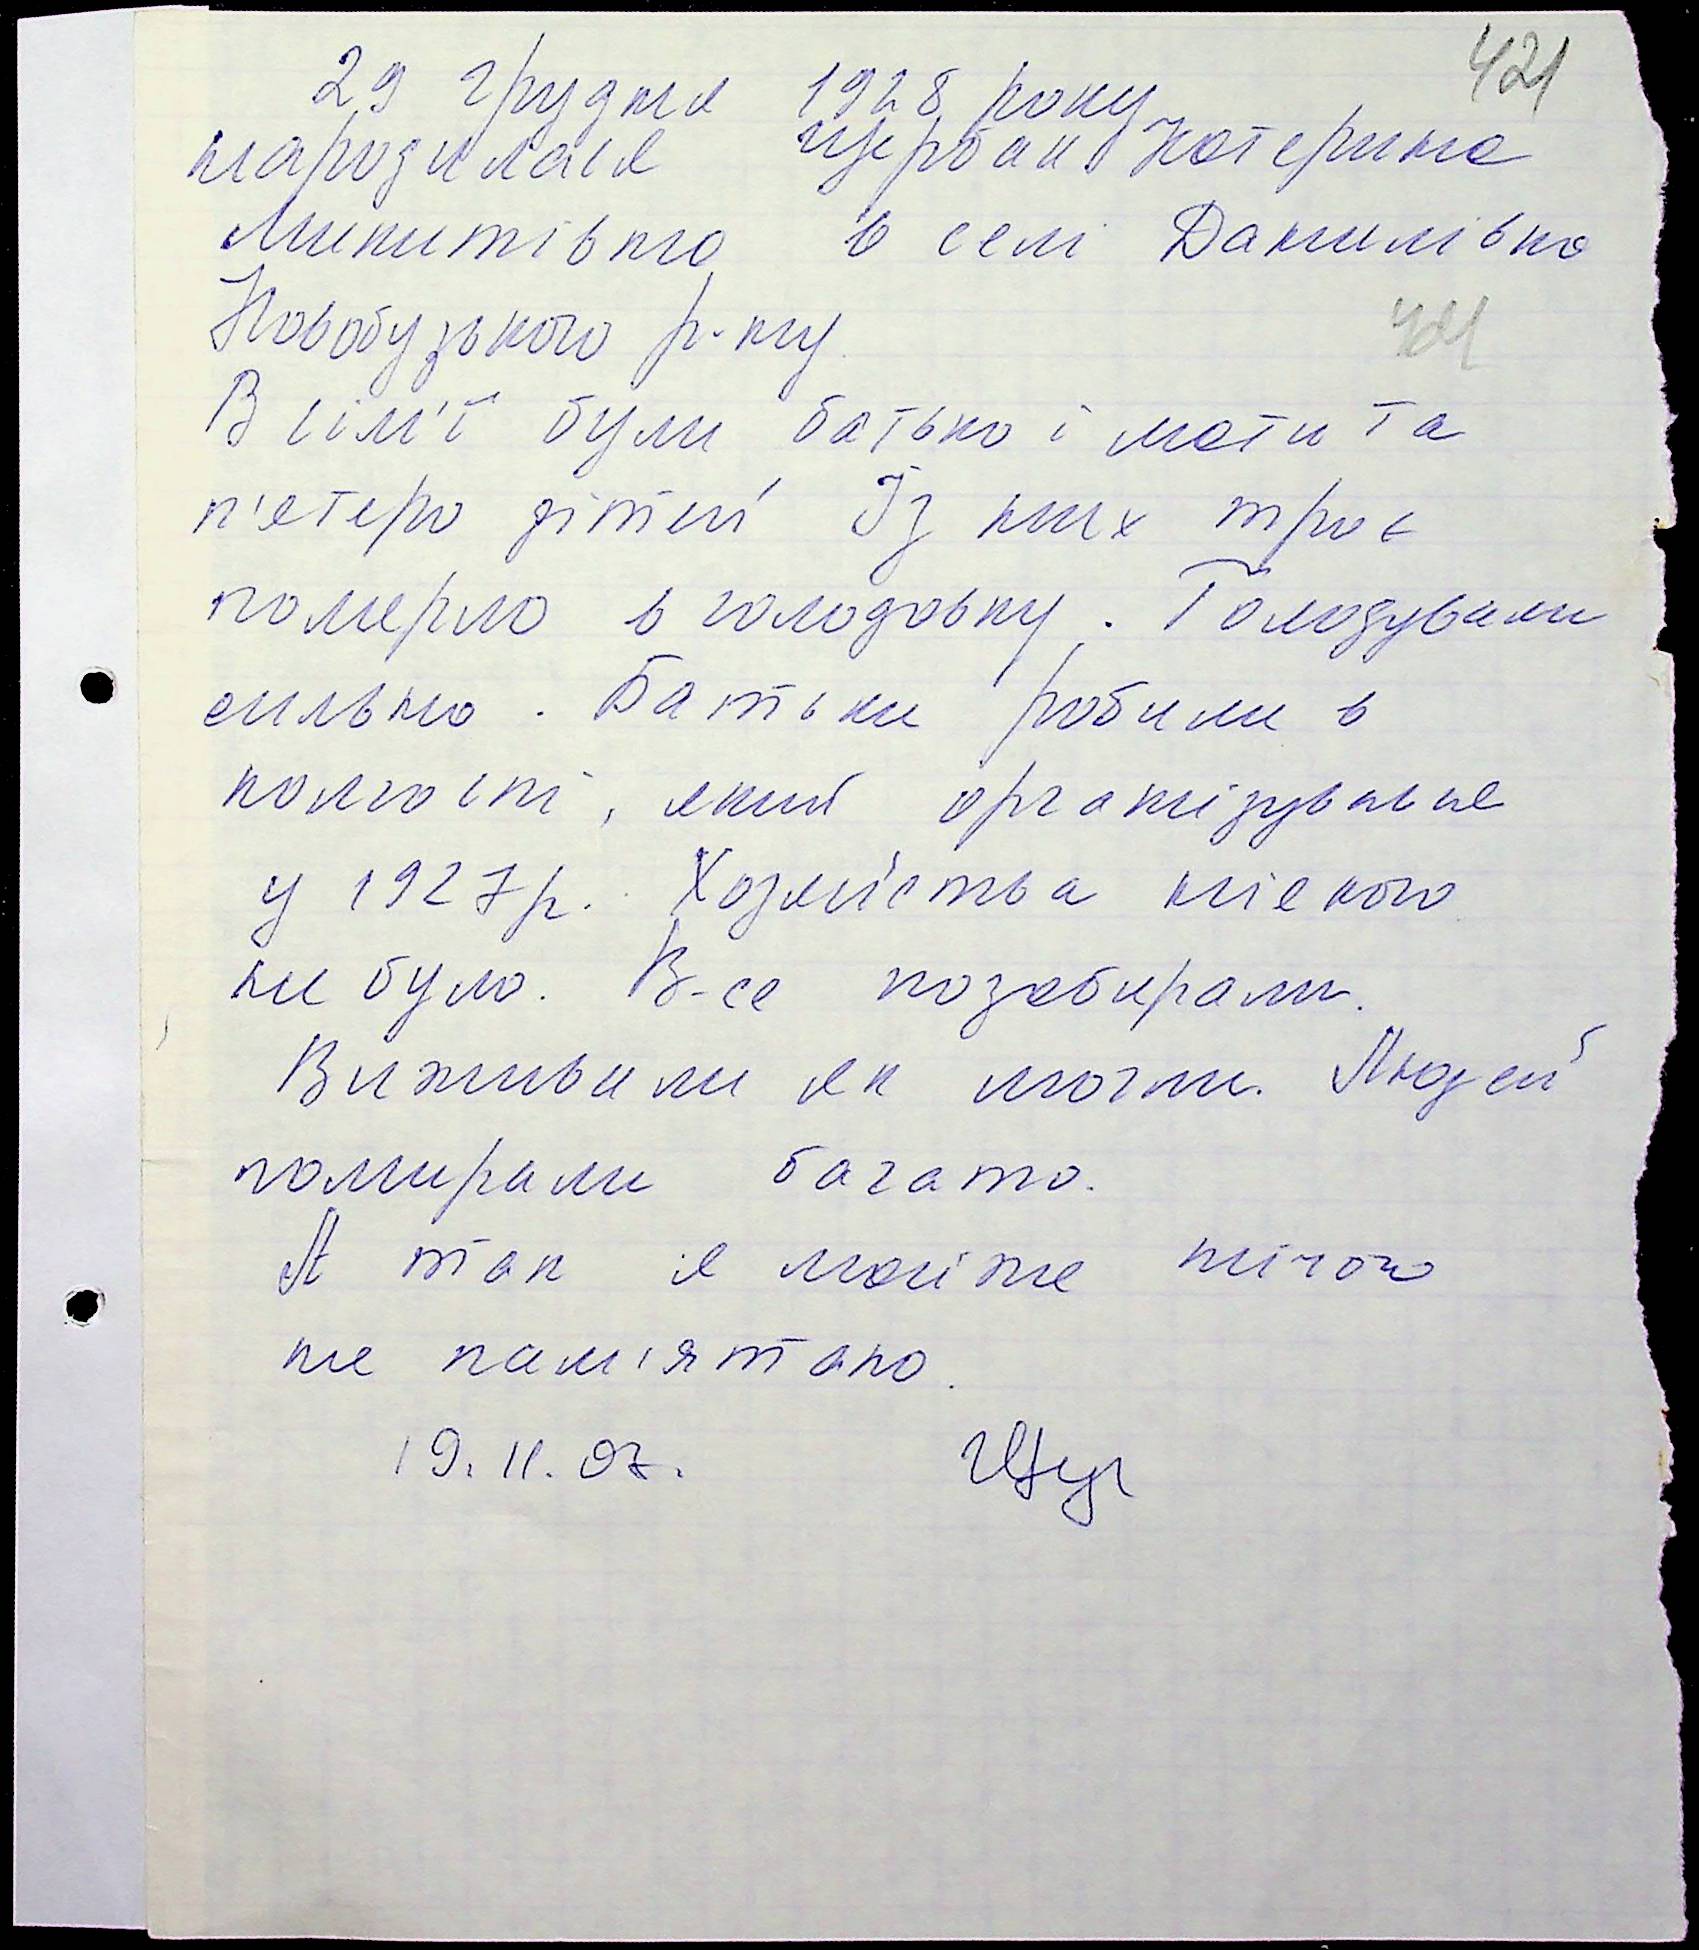 421
29 грудня 1928 року
народилася Щербак Катерина
Микитівна в селі Данилівка
Новобузького р-ну.
421
В сім'ї були батько і мати та
п'ятеро дітей Із них троє
померло в голодовку. Голодували
сильно. Батьки робили в
колгоспі, який організувався
у 1927 р. Хозяйства ніякого
не було. В-се позабирали.
Виживали як могли. Людей
помирали багато.
А так я майже нічого
не пам'ятаю.
19.11.07.